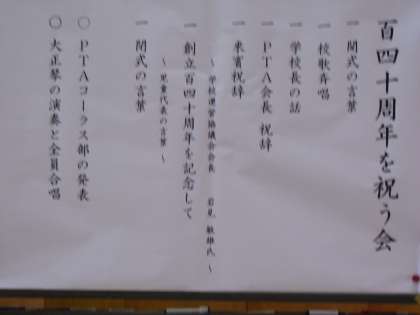 百四十周年を祝う会
一 開式の言葉
一 校歌斉唱
一 学校長の話
一 PTA会長 祝辞
一 来賓祝辞
～ 学校運営協議会会長 岩見 敏雄氏 ～
一 創立百四十周年を記念して
～ 児童代表の言葉 ～
一 閉式の言葉
○ PTAコーラス部の発表
○ 大正琴の演奏と全員合唱